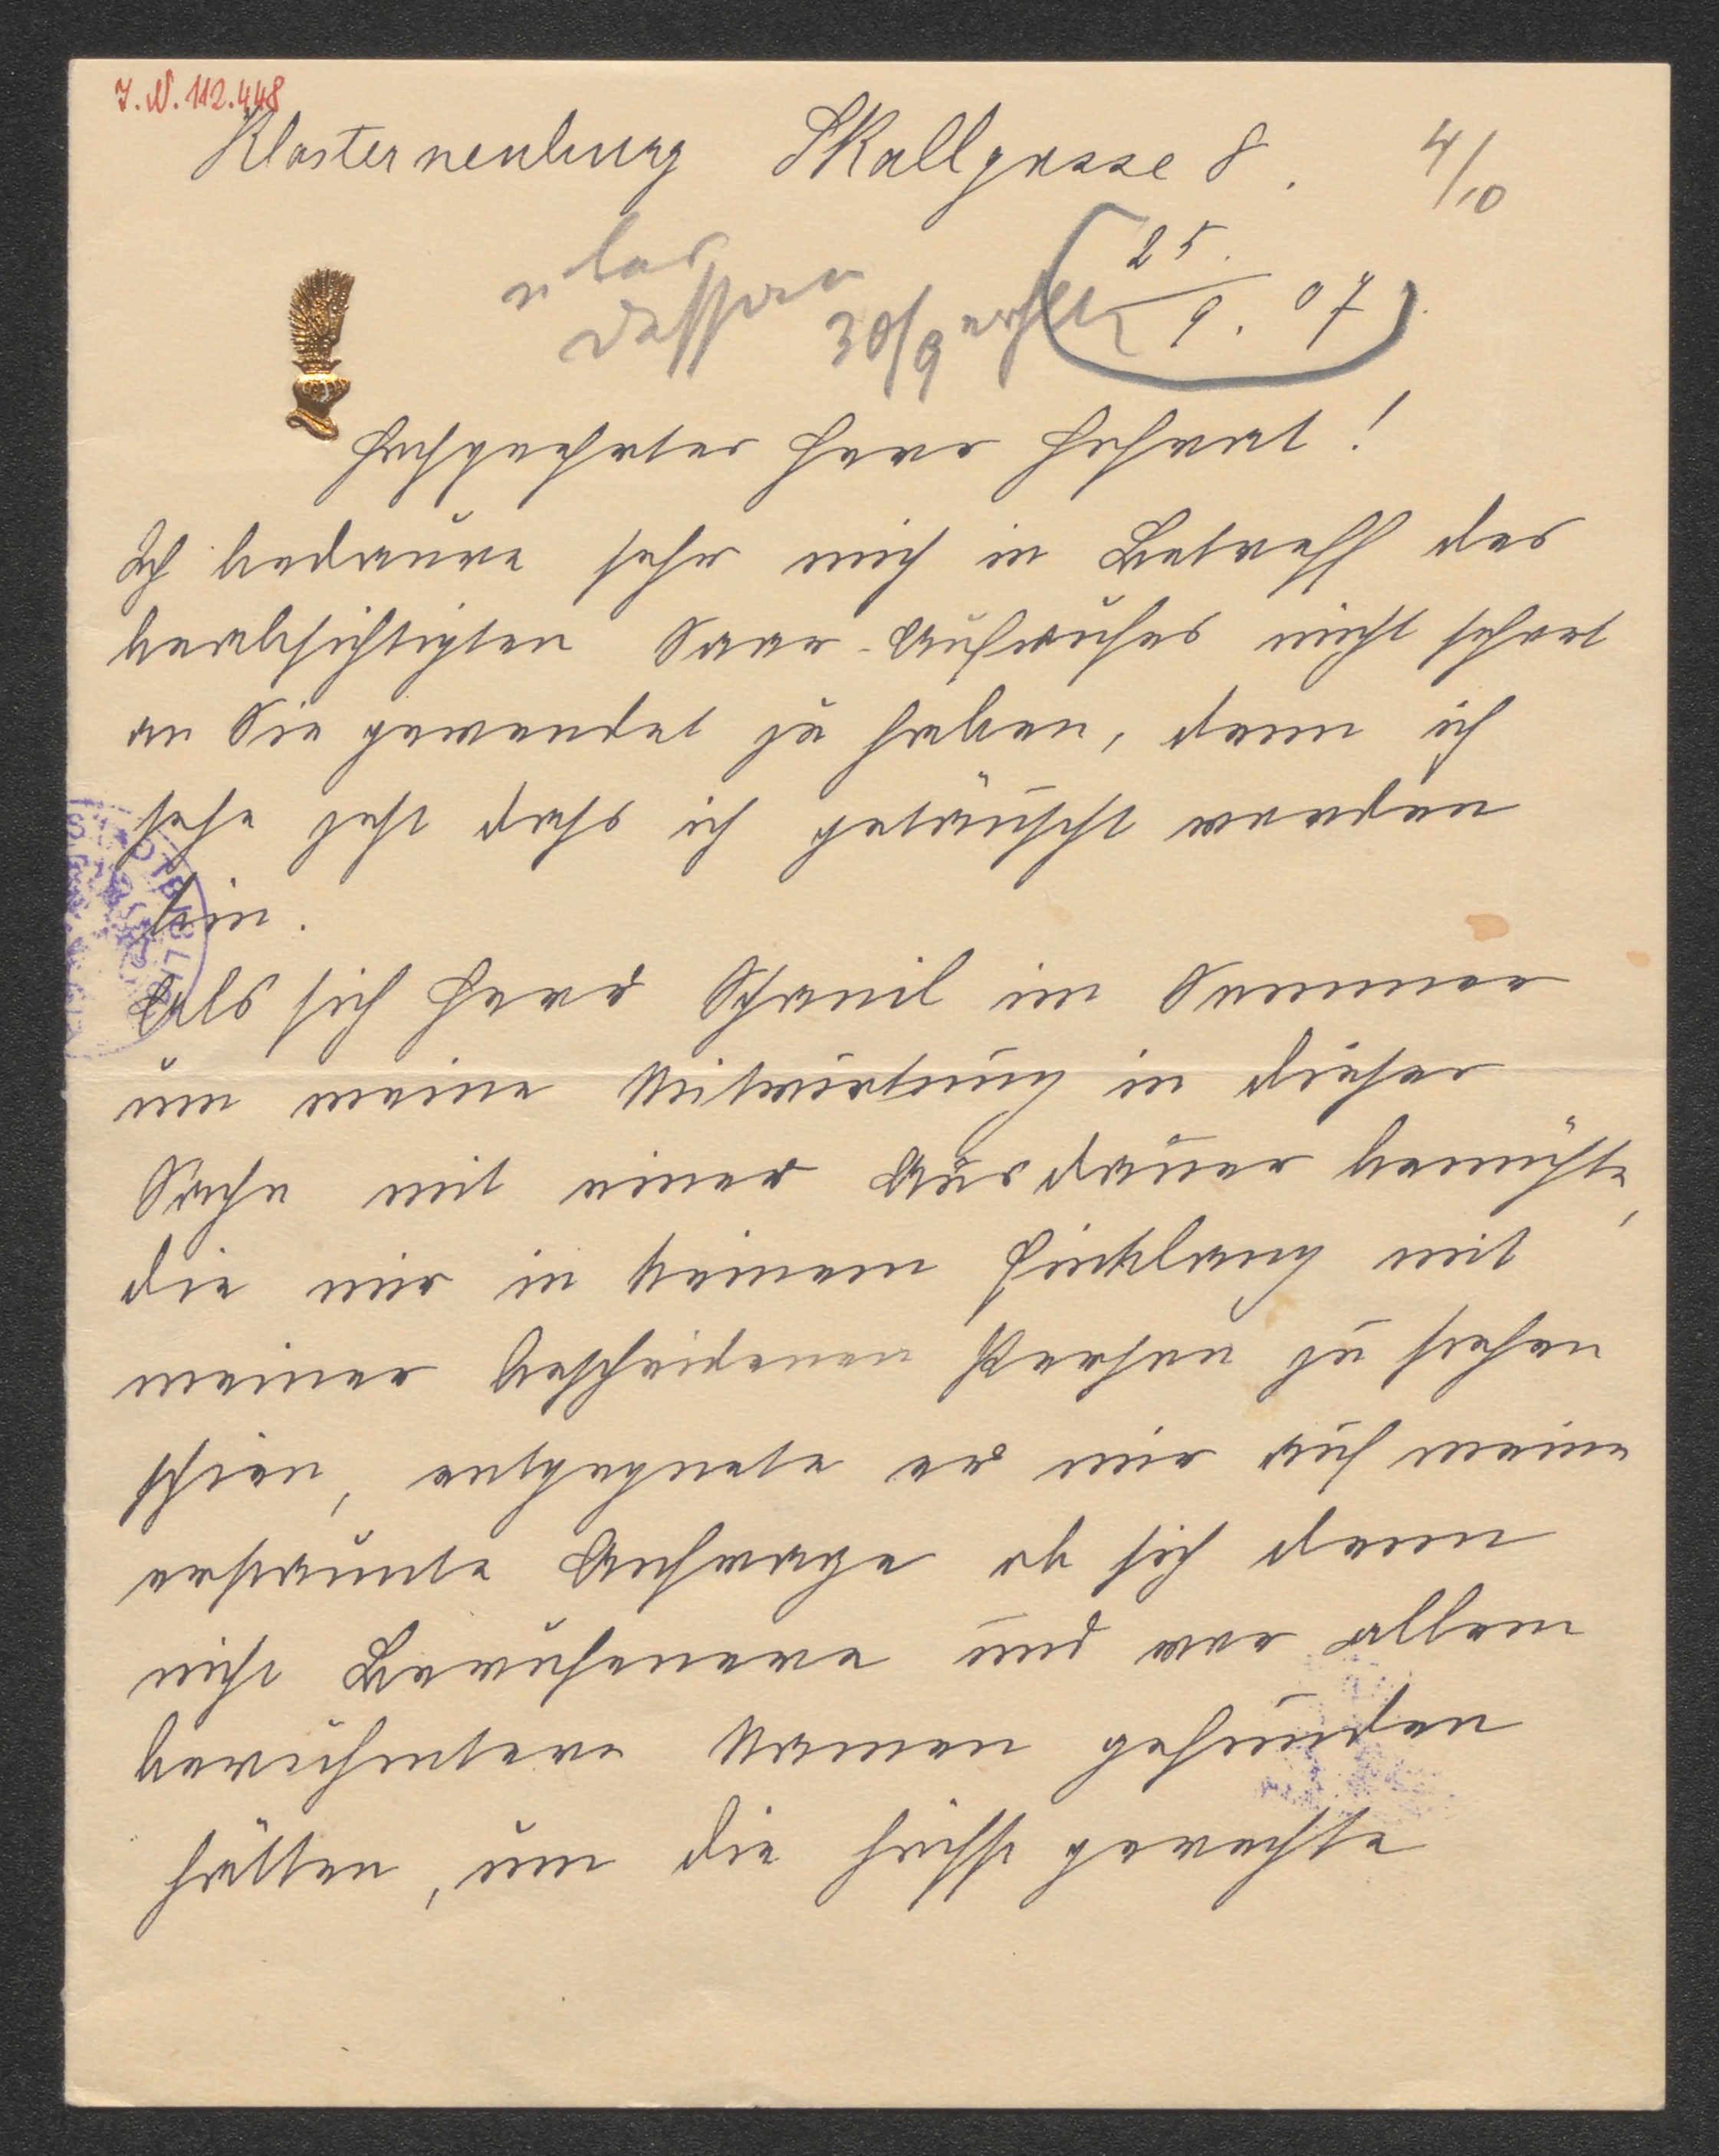 I. N. 112.448
Klosterneuburg Skallgasse 8. 4/10
25.
9. 07
30/9
Hochgeehrter Herr Hofrat!
Ich bedaure sehr mich in Betreff des
beabsichtigten Saar-Aufrufes nicht sofort
an Sie gewendet zu haben, denn ich
sehe jetzt dass ich getäuscht worden
bin.
Als sich Herr im Sommer
um meine Mitwirkung in dieser
Sache mit einer Ausdauer bemühte,
die mir in keinem Einklang mit
meiner bescheidenen Person zu stehen
schien, entgegnete er mir auf meine
erstaunte Anfrage ob sich denn
nicht Berufenere und vor allem
berühmtere Namen gefunden
hätten, um die höchst gerechte